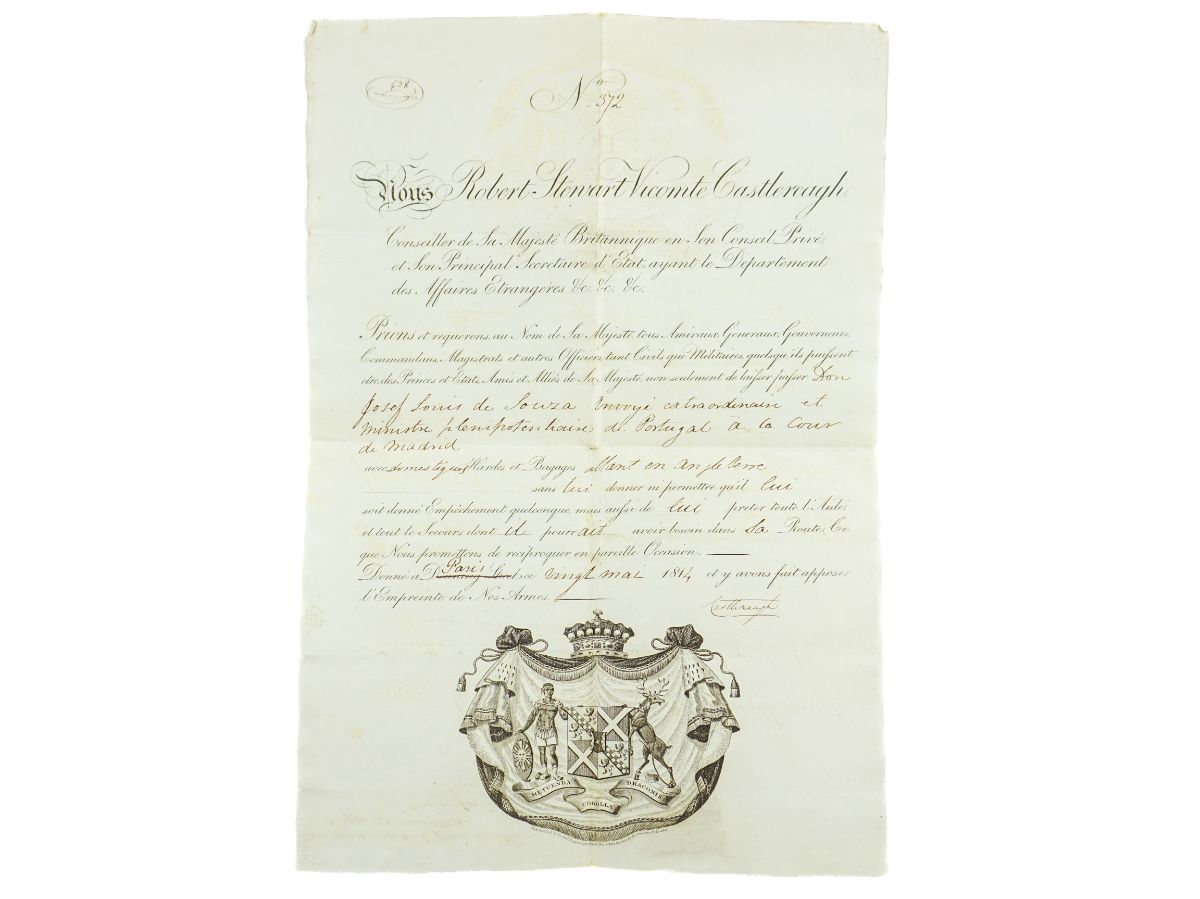 638
No 372
Nous Robert Stewart Vicomte Castlereagh.
Conseiller de Sa Majesté Britannique en Son Conseil Privé,
et Son Principal Secretaire d'Etat, ayant le Departement
des Affaires Etrangères &c. &c. &c.
Prions et requerons, au Nom de Sa Majesté, tous Amiraux, Generaux, Gouverneurs,
Commandans, Magistrats et autres Officiers, tant Civils que Militaires, quelsqu'ils puissent
etre, des Princes et Etats, Amis et Alliés de Sa Majesté, non seulement de laisser passer Don
Josef Louis de Souza Envoyé extraordinaire et
Ministre plenipotentiaire de Portugal à la Cour
de Madrid
avec domestiques Hardes et Bagages allant en angleterre
sans lui donner ni permettre qu'il lui
soit donné Empêchement quelconque, mais aussi de lui preter toute l'Aide,
et tout le Secours dont il pourrait avoir besoin dans Sa Route. Ce
que Nous promettons de reciproquer en pareille Occasion.
Donné à Paris ce vingt mai 1814 et y avons fait apposer
l'Empreinte de Nos Armes.
Castlereagh
METUENDA COROLLA DRACONIS